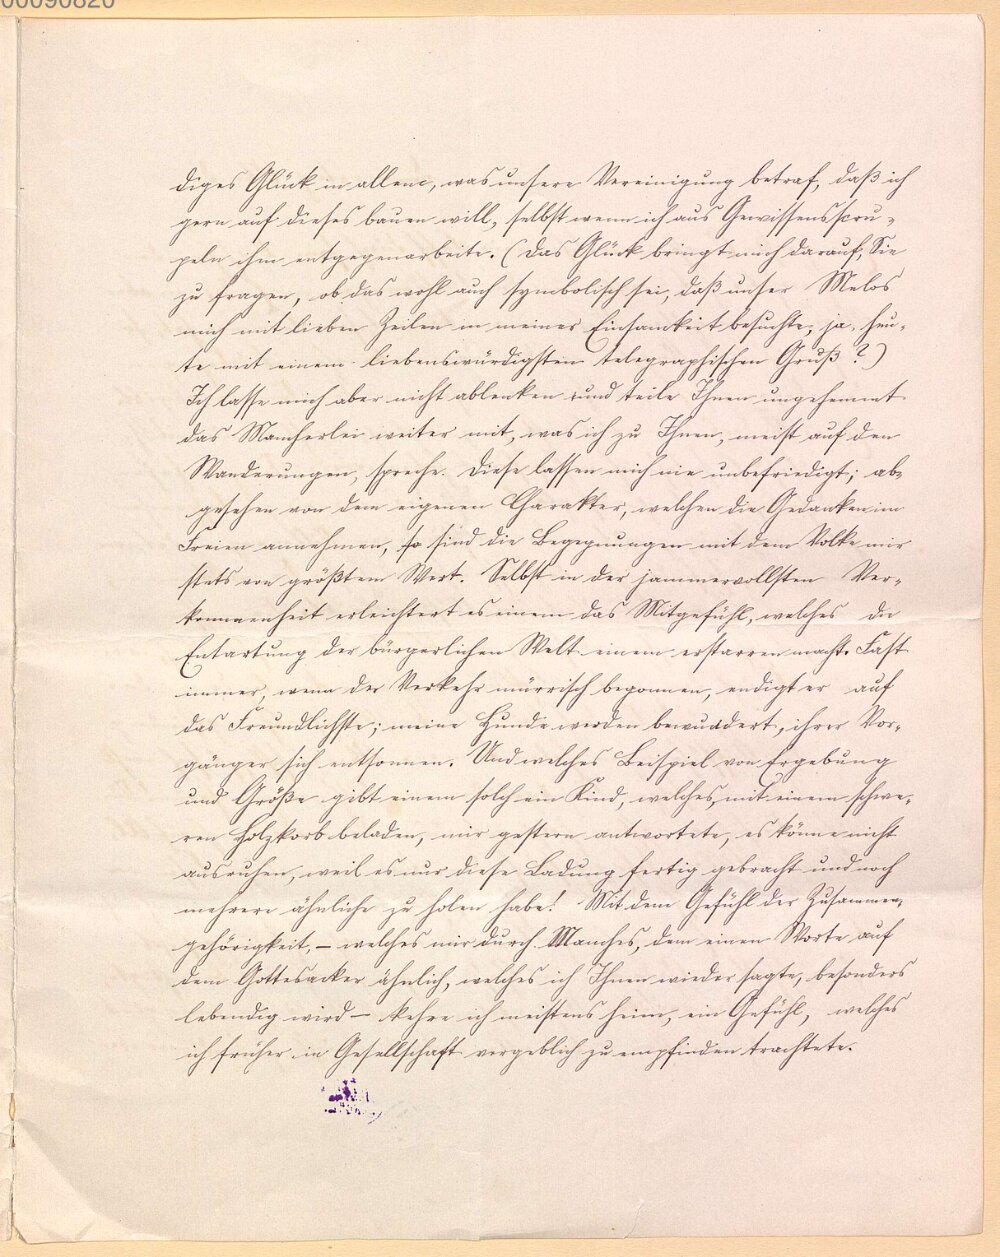 00090820
diges Glück in allem, was unsere Vereinigung betraf, daß ich
gern auf dieses bauen will, selbst wenn ich aus Gewissensscru-
peln ihm entgegenarbeite. (Das Glück bringt mich darauf, Sie
zu fragen, ob das wohl auch symbolisch sei, daß unser Melos
mich mit lieben Zeilen in meiner Einsamkeit besuchte, ja, heu-
te mit einem liebenswürdigsten telegraphischen Gruß?)
Ich lasse mich aber nicht ablenken und teile Ihnen ungehemmt
das Mancherlei weiter mit, was ich zu Ihnen, meist auf den
Wanderungen, spreche. Diese lassen mich nie unbefriedigt; ab-
gesehen von dem eigenen Charakter, welchen die Gedanken im
Freien annehmen, so sind die Begegnungen mit dem Volke mir
stets von größtem Wert. Selbst in der jammervollsten Ver-
kommenheit erleichtert es einem das Mitgefühl, welches die
Entartung der bürgerlichen Welt einem erstarren macht. Fast
immer, wenn der Verkehr mürrisch begonnen, endigt er auf
das Freundlichste; meine Hunde werden bewundert, ihrer Vor-
gänger sich entsonnen. Und welches Beispiel von Ergebung
und Größe gibt einem solch ein Kind, welches, mit einem schwe-
ren Holzkorb beladen, mir gestern antwortete, es könne nicht
ausruhen, weil es nur diese Ladung fertig gebracht und noch
mehrere ähnliche zu holen habe! Mit dem Gefühl der Zusammen-
gehörigkeit, – welches mir durch Manches, dem einen Worte auf
dem Gottesacker ähnlich, welches ich Ihnen wieder sagte, besonders
lebendig wird – kehre ich meistens heim, ein Gefühl, welches
ich früher in Gesellschaft vergeblich zu empfinden trachtete.